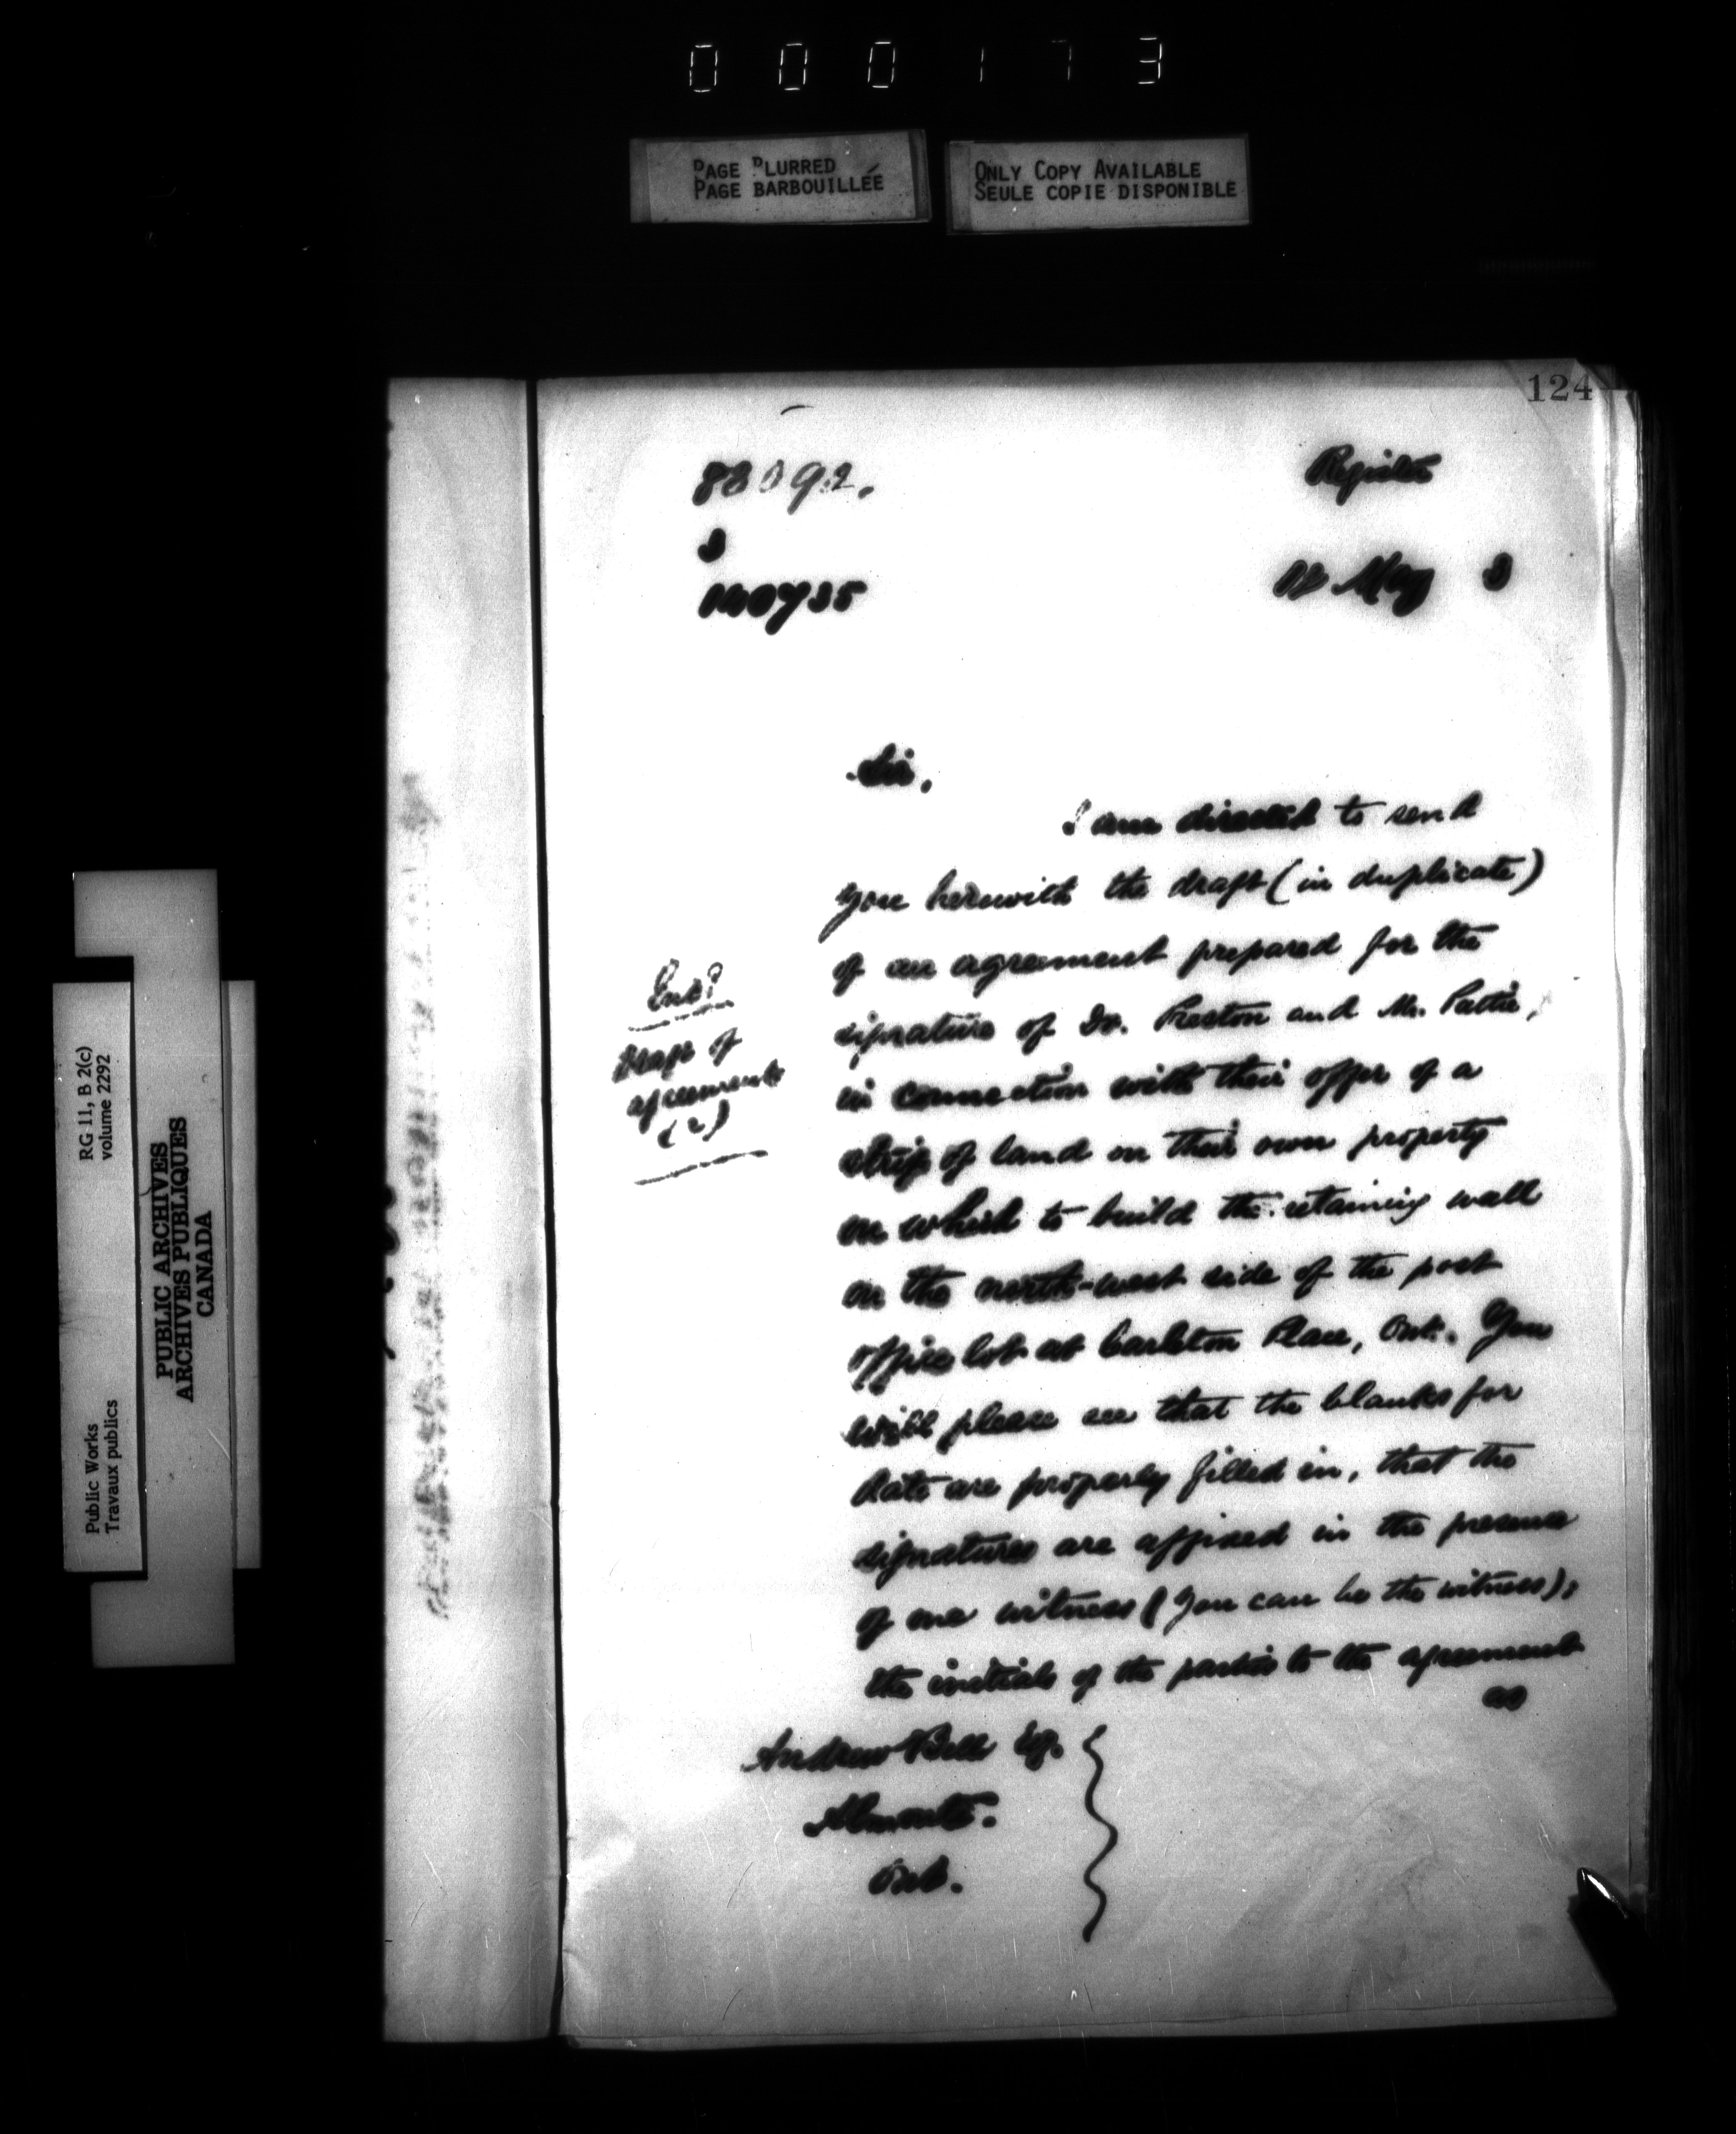 000173
PAGE BLURRED
PAGE BARBOUILLÉE
ONLY COPY AVAILABLE
SEULE COPIE DISPONIBLE
124
Register
12 May 3
Sir,
I am directed to send
you herewith the draft (in duplicate)
of an agreement prepared for the
signature of Dr. Preston and Mr. Pattie,
in connection with their offer of a
strip of land on their own property
on which to build the retaining wall
on the north-west side of the post
office lot at Carleton Place, Ont. You
will please see that the blanks for
date are properly filled in, that the
signatures are affixed in the presence
of one witness (you can be the witness);
the initials of the parties to the agreement
as
Encl
Draft of
agreements
(2)
Andrew Bell Esq.
Almonte.
Ont.
RG 11, B 2(c)
volume 2292
PUBLIC ARCHIVES
ARCHIVES PUBLIQUES
CANADA
Public Works
Travaux publics